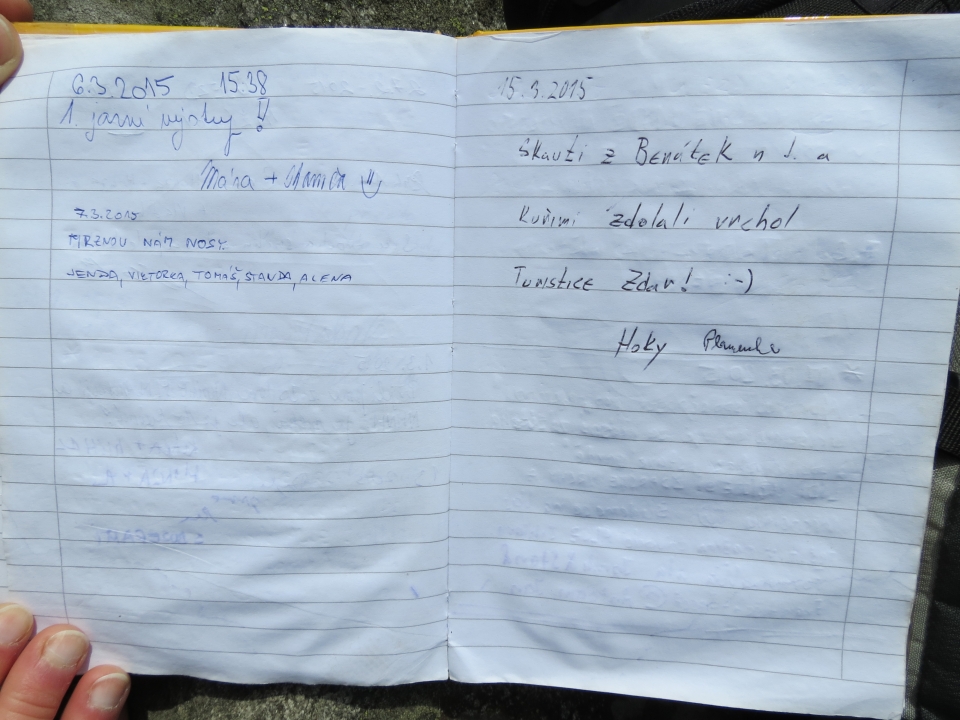 6.3.2015 15:38
1. jarní výstup !
Mára +
7.3.2015
MRZNOU NÁM NOSY.
JENDA, VIKTORKA, TOMÁŠ, STANDA, ALENA
15.3.2015
Skauti z Benátek n J. a
Kuřimi zdolali vrchol
Turistice Zdar! :-)
Hoky